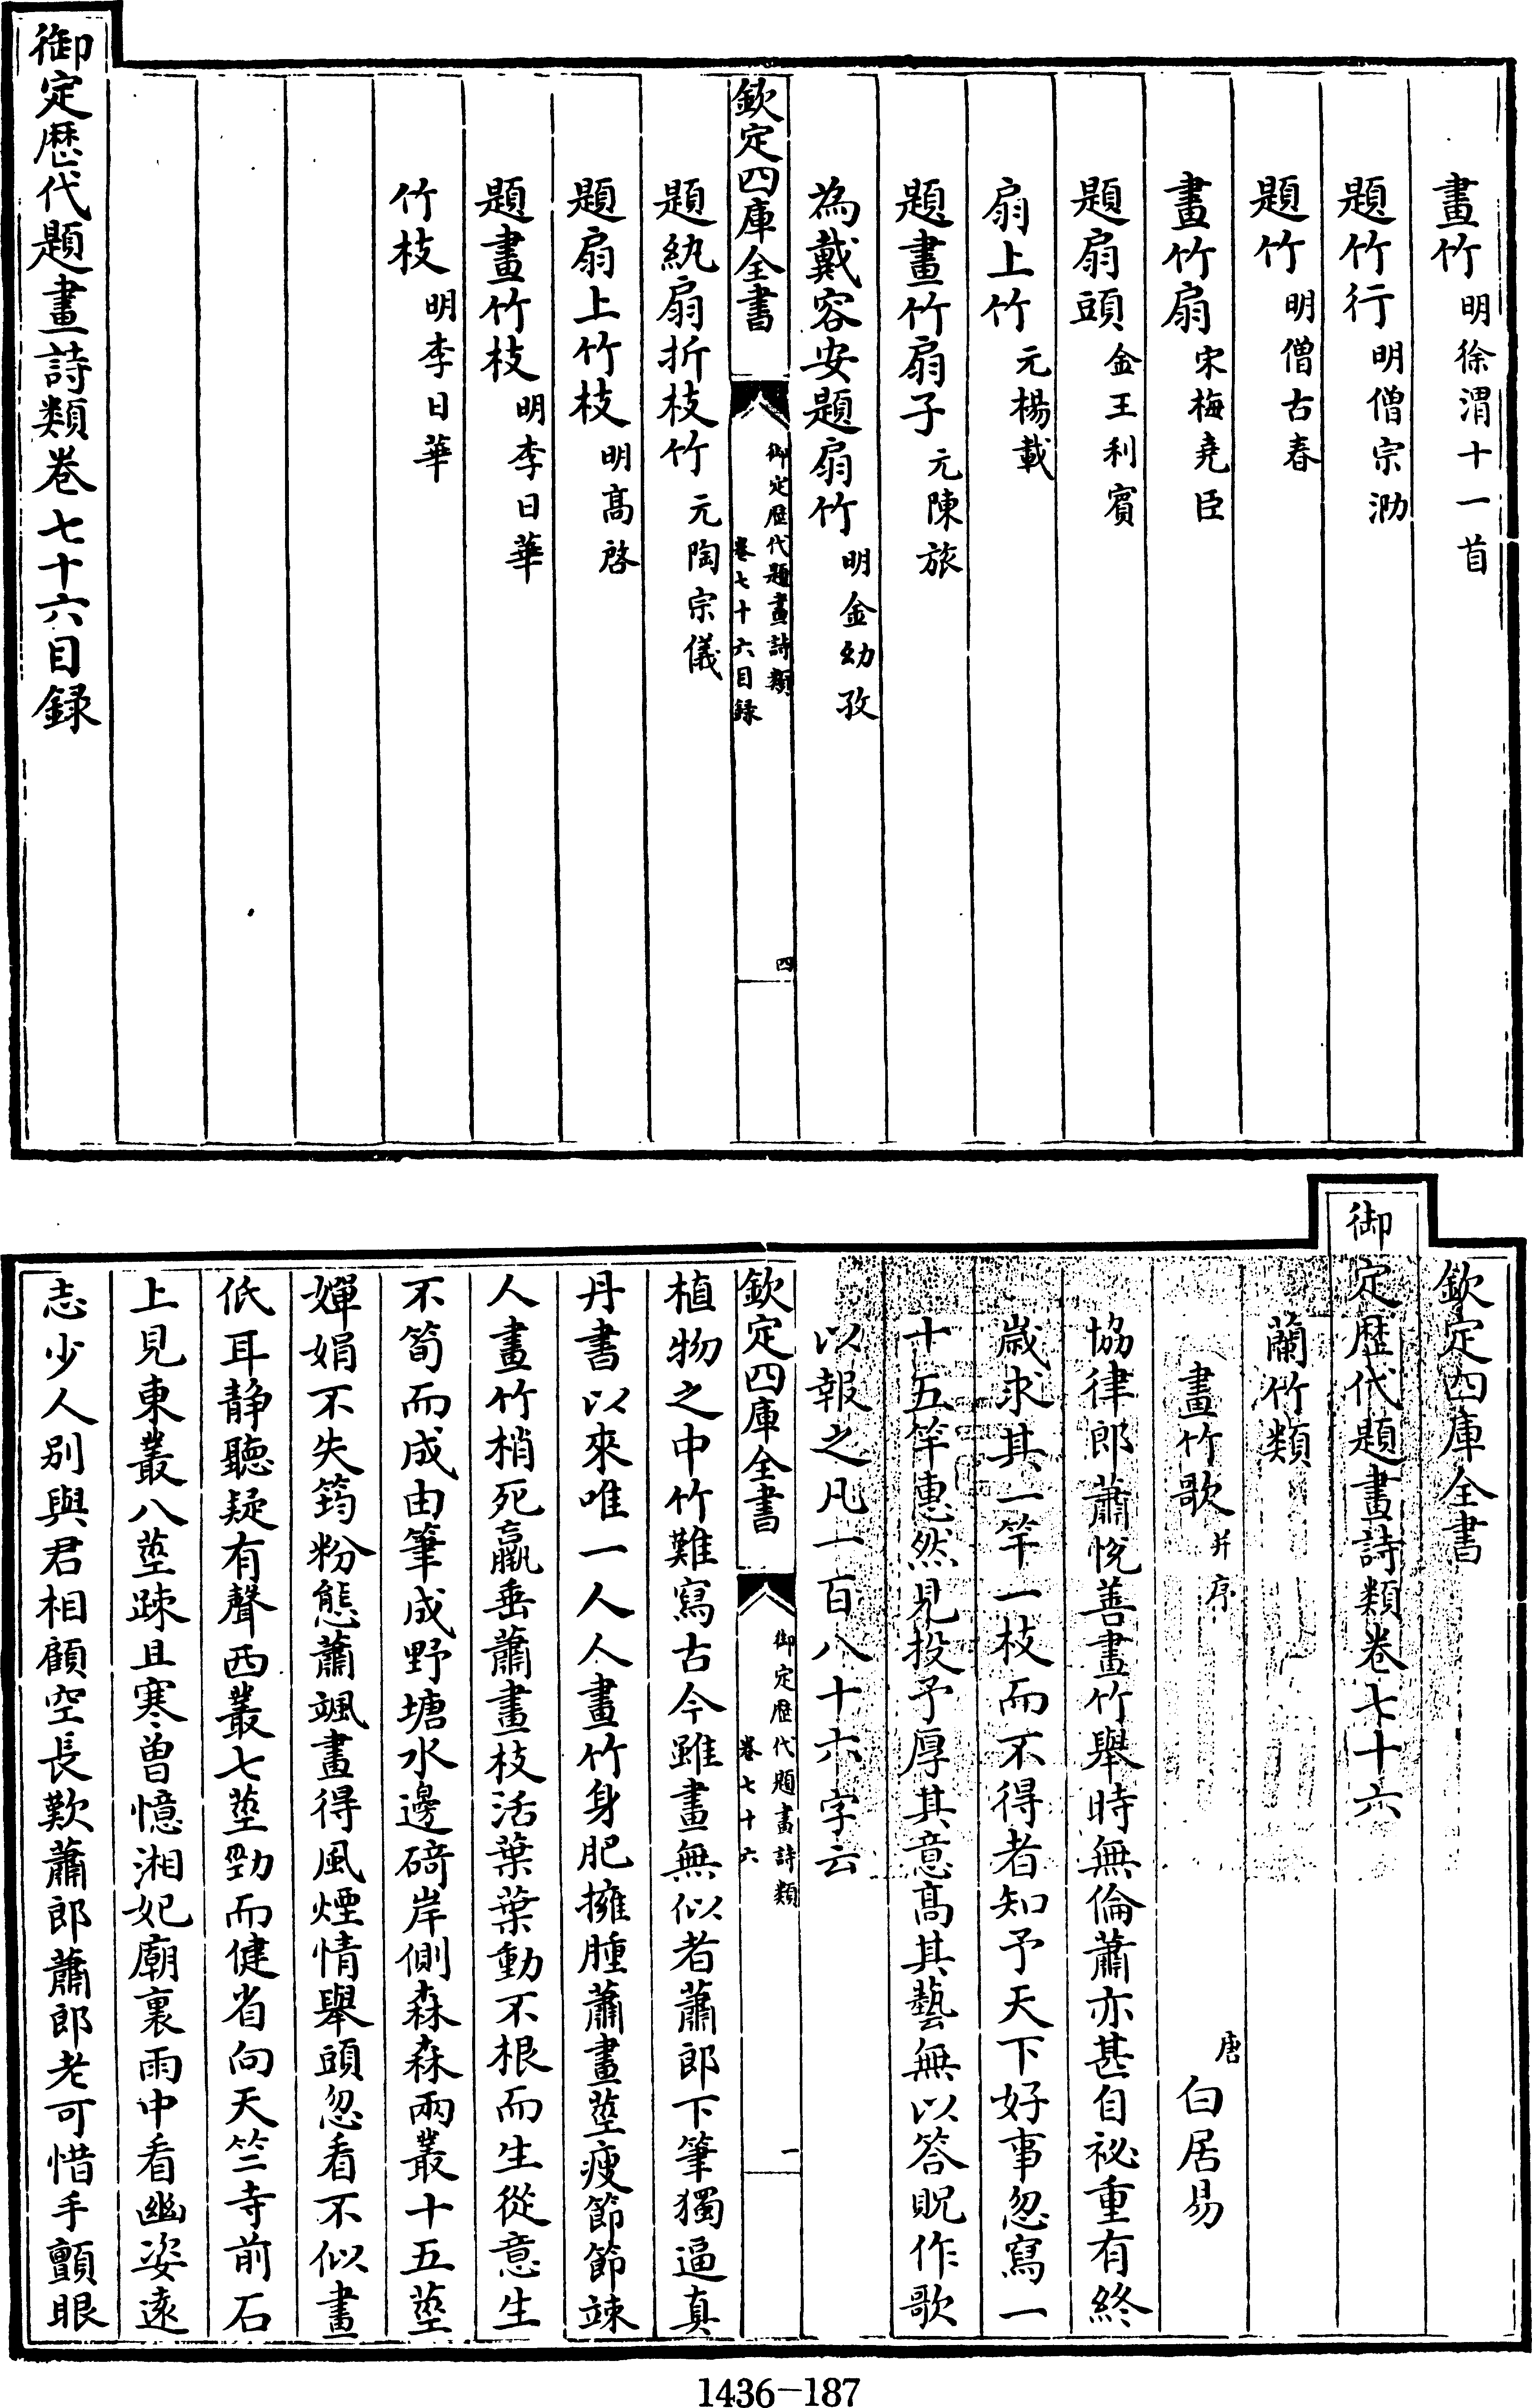 畫竹 明徐渭十一首
題竹行 明僧宗泐
題竹 明僧古春
畫竹扇 宋梅堯臣
題扇頭 金王利賓
扇上竹 元楊載
題畫竹扇子 元陳旅
為戴容安題扇竹 明金幼孜
欽定四庫全書
御定歴代題畫詩類
卷七十六目録
四
題紈扇折枝竹 元陶宗儀
題扇上竹枝 明高啓
題畫竹枝 明李日華
竹枝 明李日華
御定歴代題畫詩類卷七十六目録
欽定四庫全書
御定歴代題畫詩類卷七十六
蘭竹類
畫竹歌 并序 唐 白居易
協律郎蕭悅善畫竹舉時無倫蕭亦甚自祕重有終
歲求其一竿一枝而不得者知予天下好事忽寫一
十五竿惠然見投予厚其意高其藝無以答貺作歌
以報之凡一百八十六字云
欽定四庫全書
御定歴代題畫詩類
卷七十六
一
植物之中竹難寫古今雖畫無似者蕭郎下筆獨逼真
丹書以來唯一人人畫竹身肥擁腫蕭畫莖瘦節節竦
人畫竹梢死羸垂蕭畫枝活葉葉動不根而生從意生
不筍而成由筆成野塘水邊碕岸側森森兩叢十五莖
嬋娟不失筠粉態蕭颯畫得風煙情舉頭忽看不似畫
低耳靜聽疑有聲西叢七莖勁而健省向天竺寺前石
上見東叢八莖踈且寒曽憶湘妃廟裏雨中看幽姿遠
志少人別與君相顧空長歎蕭郎蕭郎老可惜手顫眼
1436-187